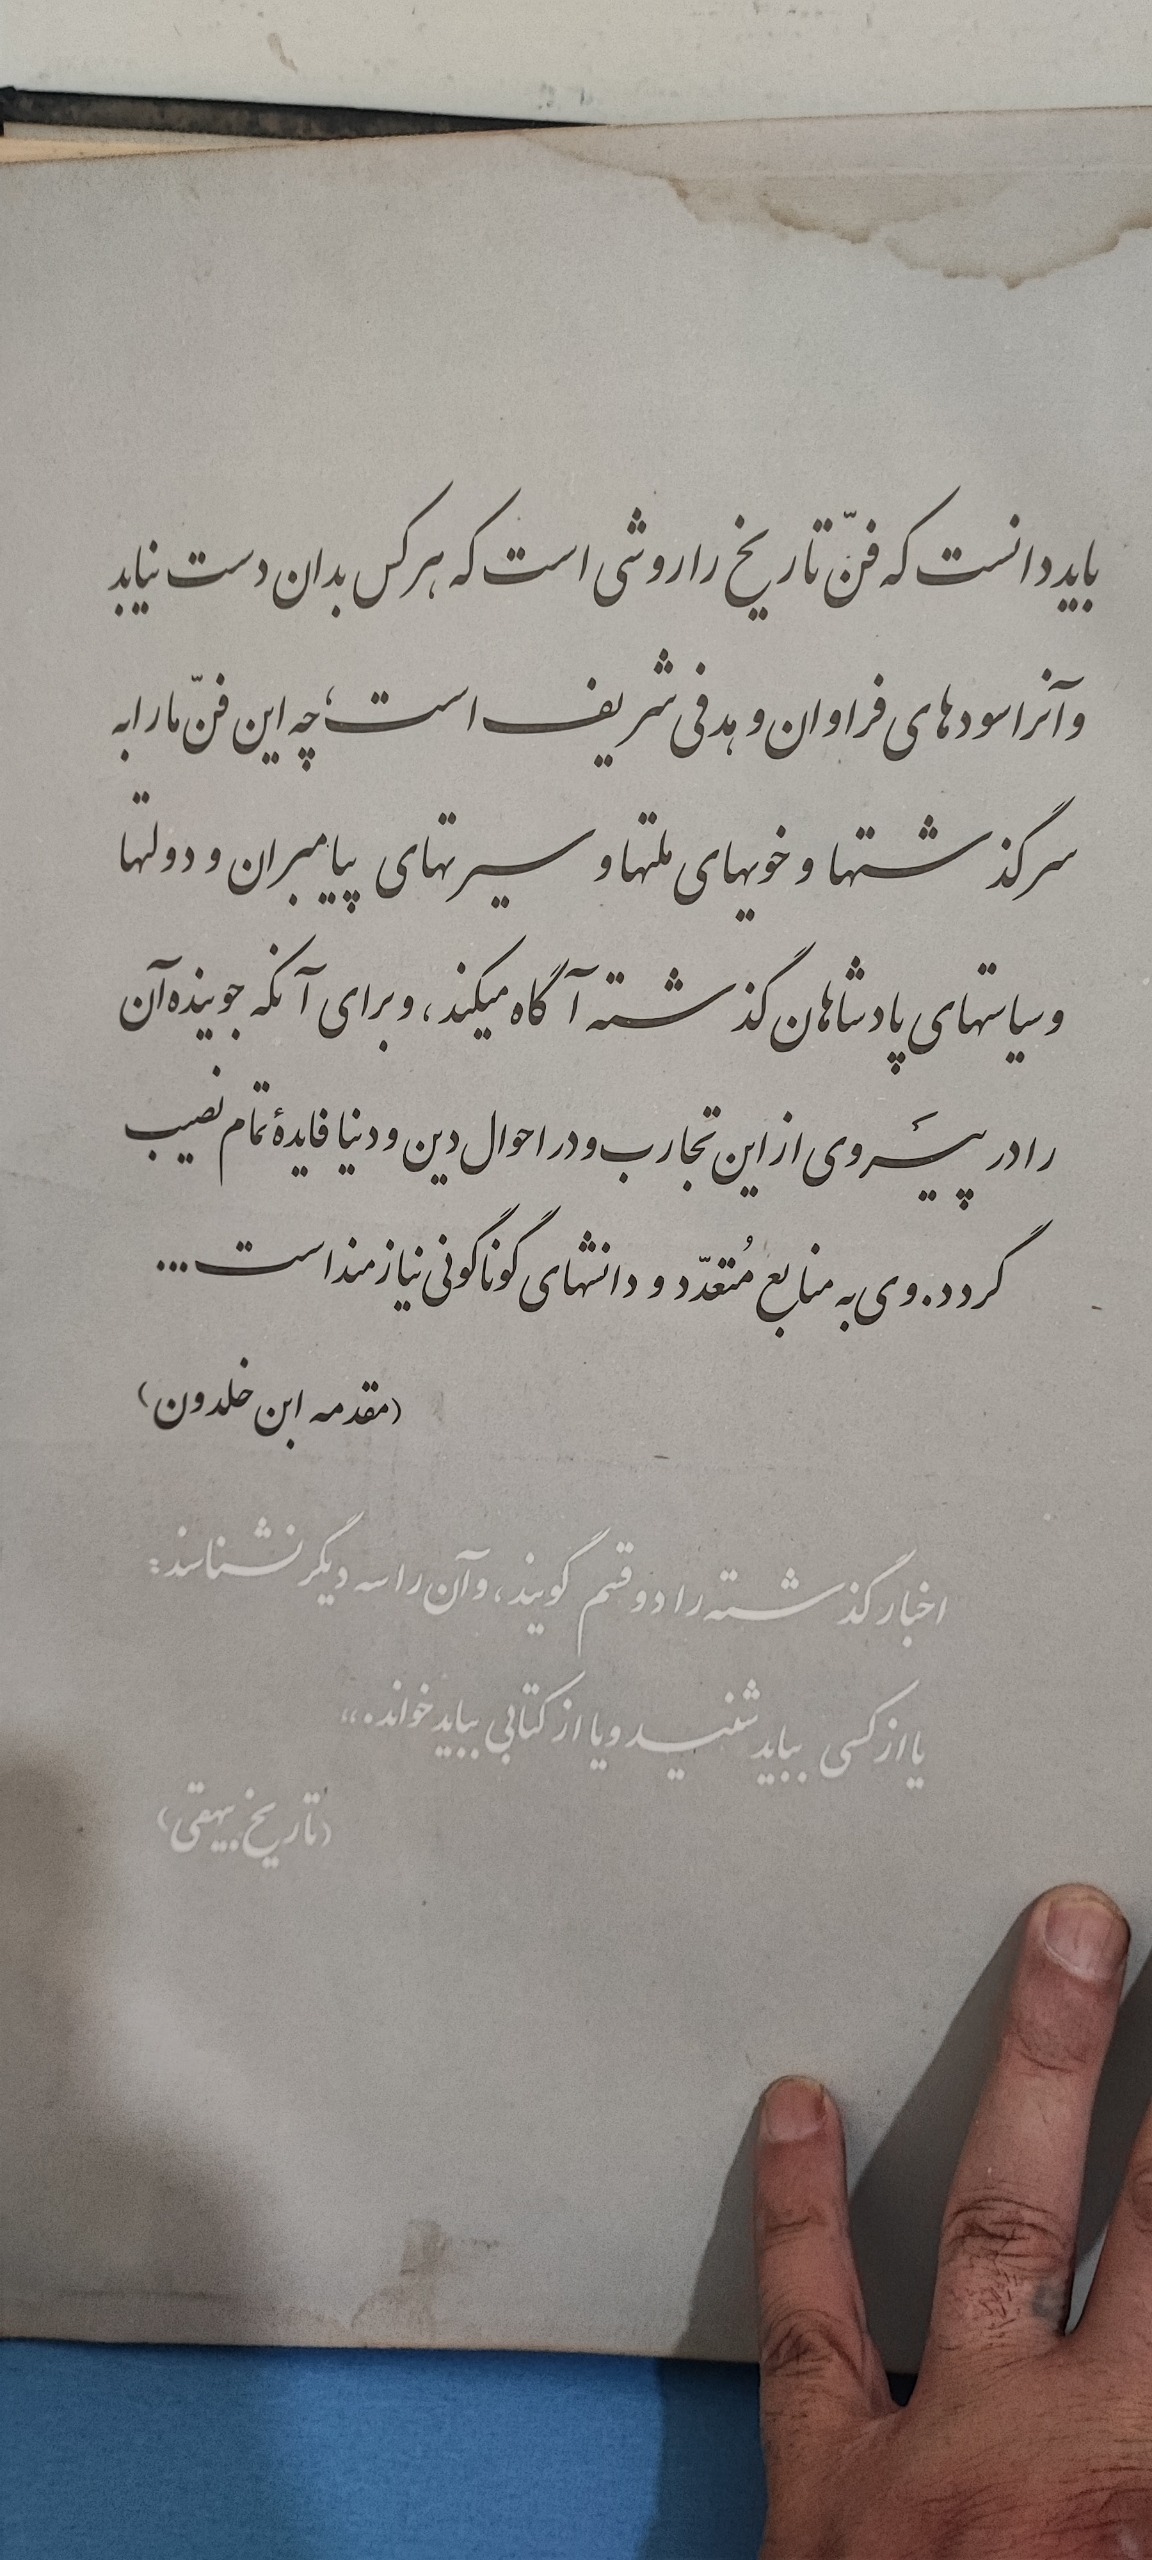 باید دانست که فنّ تاریخ را روشی است که هر کس بدان دست نیابد
و آنرا سودهای فراوان و هدفی شریف است؛ چه این فنّ ما را به
سرگذشتها و خویهای ملتها و سیرتهای پیامبران و دولتها
و سیاستهای پادشاهان گذشته آگاه میکند، و برای آنکه جوینده آن
را در پیَروی از این تجارب و در احوال دین و دنیا فایدهٔ تمام نصیب
گردد. وی به منابع مُتعدّد و دانشهای گوناگونی نیازمند است...
(مقدمه ابن خلدون)
اخبار گذشته را دو قسم گویند، و آن را سه دیگر نشناسند:
یا از کسی بباید شنید و یا از کتابی بباید خواند.،،
(تاریخ بیهقی)